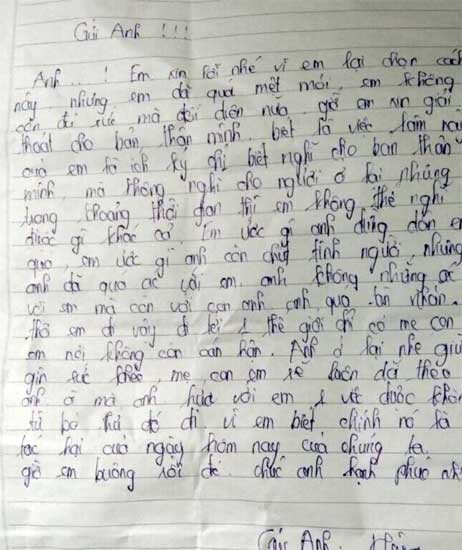 Gửi Anh !!!
Anh...! Em xin lỗi nhé vì em lại chọn cách
này nhưng em đã quá mệt mỏi. em không
còn đủ sức mà đối diện nữa. giờ em xin giải
thoát cho bản thân mình biết là việc làm này
của em là ích kỷ chỉ biết nghĩ cho bản thân
mình, mà không nghĩ cho người ở lại nhưng
trong khoảng thời gian thì em không thể nghĩ
được gì khác cả. Em ước gì anh đừng dồn e
quá, em ước gì anh còn chút tình người nhưng
anh đã quá ác với em. anh không những ác
với em mà còn với con anh anh quá tàn nhẫn.
Thôi em đi vậy đi tới 1 thế giới chỉ có mẹ con
em nơi không còn cắn hận. Anh ở lại nhé giữ
gìn sức khỏe mẹ con em sẽ luôn dõi theo
anh mà anh hứa với em 1 việc được không
từ bỏ nó đi vì em biết chính nó là
tác hại của ngày hôm nay của chúng ta.
giờ em buông rồi đó. chúc anh hạnh phúc nhé
Gửi Anh.